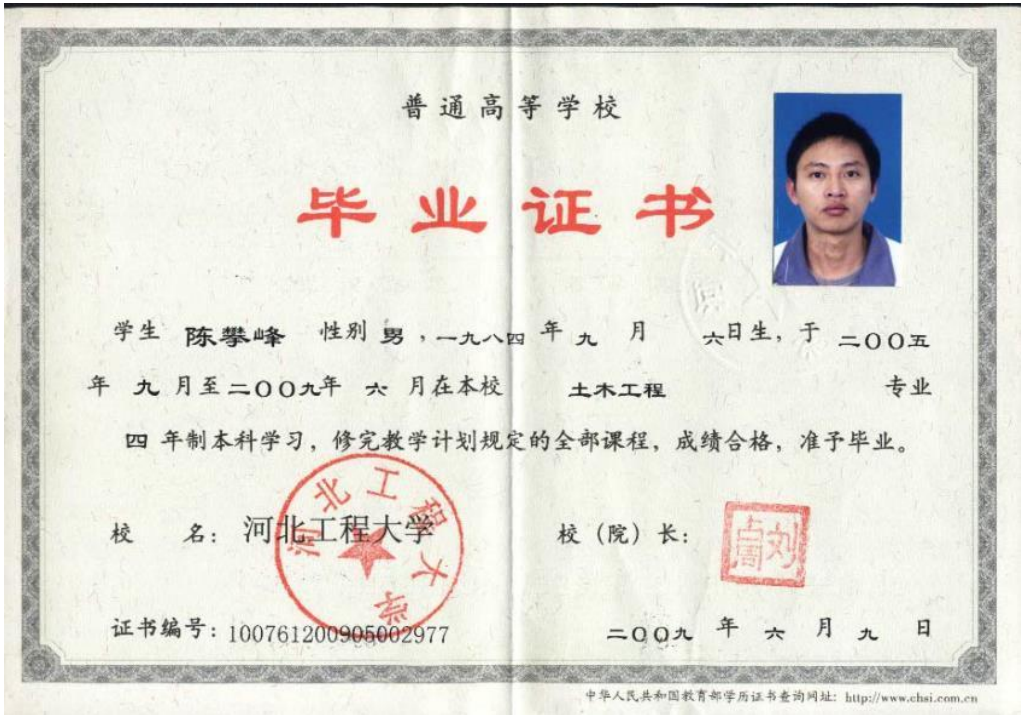 普通高等学校
毕业证书
学生 陈攀峰 性别 男，一九八四 年 九 月 六日生，于 二〇〇五
年 九 月至二〇〇九年 六 月在本校 土木工程 专业
四 年制本科学习，修完教学计划规定的全部课程，成绩合格，准予毕业。
河北工程大学
校 名：河北工程大学 校（院）长：
证书编号：100761200905002977 二〇〇九 年 六 月 九 日
中华人民共和国教育部学历证书查询网址：http://www.chsi.com.cn